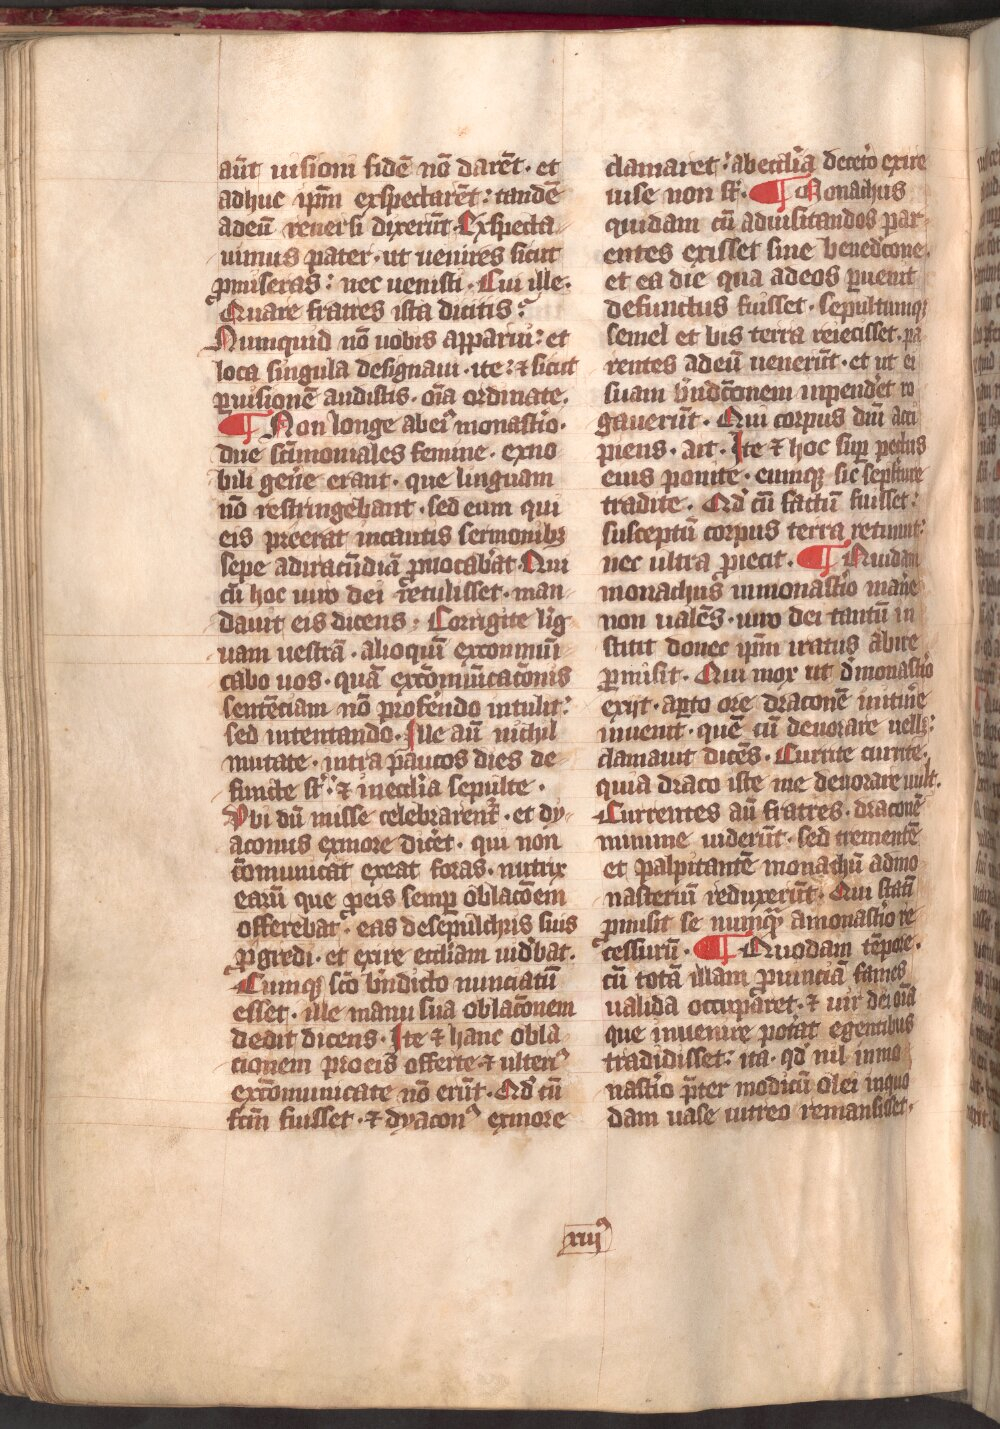 aūt uisioni fidē nō darēt · et
adhuc ip̄m exspectarēt : tandē
adeū reuersi dixerūt · Exspecta
uimus pater · ut uenires sicut
ꝓmiseras : nec uenisti · Cui ille ·
Quare fratres ista dicitis ?
Numquid nō uobis apparui : et
loca singula designaui · ite : ⁊ sicut
ꝑuisionē audistis · oīa ordinate ·
¶ Non longe abeiꝰ monast̄io ·
due sc̄imoniales femine · exno
bili gen̄e erant · que linguam
nō restringebant · sed eum qui
eis preerat incautis sermonibꝫ
sepe adiracūdiā ꝓuocab̄at · Qui
cū hoc uiro dei retulisset · man
dauit eis dicens · Corrigite līg
uam uestrā · alioquin excōmuni
cabo uos · quā excōmunicatōnis
sentēciam nō proferendo intulit :
sed intentando · Ille aūt nichil
mutate · intra paucos dies de
functe st̄ : ⁊ inecc̄lia sepulte ·
Vbi dū misse celebrarent̄ · et dy
aconus exmore dic̄et · qui non
cōmunicat exeat foras · nutrix
earū que ꝓeis semꝑ oblacōem
offerebat · eas desepulchris suis
ꝓgredi · et exire eccl̄iam uid̄bat ·
Cumqꝫ sc̄o bn̄dicto nunciatū
esset · ille manu sua oblacōnem
dedit dicens · Ite ⁊ hanc obla
cionem proeis offerte ⁊ ulteriꝰ
excōmunicate nō erūt · Qd̄ cū
fc̄m fuisset · ⁊ dyaconꝰ exmore
clamaret : abeccl̄ia decet̄o exire
uise non st̄ · ¶ Monachus
quidam cū aduisitandos par
entes exisset sine bened̄cone ·
et ea die qua adeos ꝑuenit
defunctus fuisset · sepultumqꝫ
semel et bis terra reiecisset · pa
rentes adeū uenerūt · et ut ei
suam bn̄dc̄onem inpend̄et ro
gauerūt · Qui corpus dn̄i acci
piens · ait · Ite ⁊ hoc suꝑ pectus
eius ponite · eumqꝫ sic sepulture
tradite · Qd̄ cū factū fuisset :
susceptū corpus terra retinuit :
nec ultra ꝓiecit · ¶ Quidam
monachus inmonast̄io man̄e
non ualēs · uiro dei tantū in
stitit donec ip̄m iratus abire
ꝑmisit · Qui mox ut d̄monast̄io
exijt · aꝑto ore draconē initin̄e
inuenit · quē cū deuorare uell̄ :
clamauit dicēs · Currite currite ·
quia draco iste me deuorare uult ·
Currentes aūt fratres · draconē
minime uiderūt · sed trementē
et palpitantē monachū admo
nasteriū reduxerūt · Qui stati̅
ꝓmisit se numqᷓ amonast̄io re
cessurū · ¶ Quodam tēpore ·
cū totā illam ꝓuinciā fames
ualida occuparet · ⁊ uir dei oīa
que inuenire pot̄at egentibus
tradidisset : ita · qd̄ nil inmo
nast̄io p̄ter modicū olei inquo
dam uase uitreo remansisset ·
xiiijꝰ